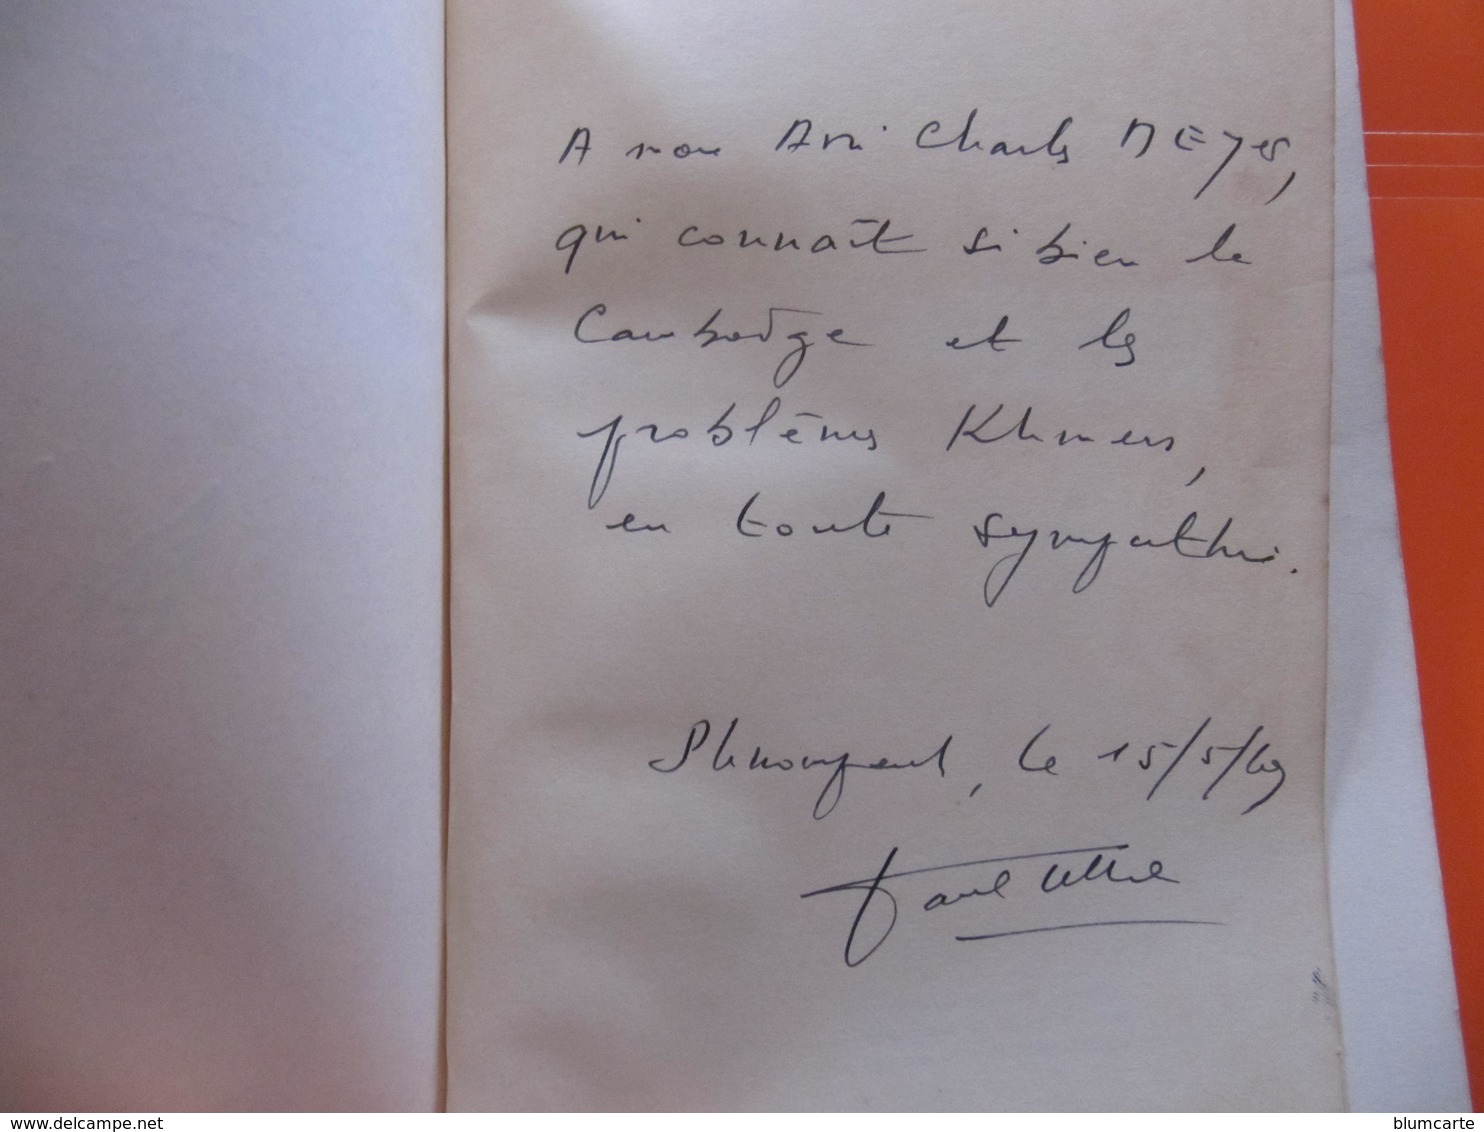 A mon Ami Charles MEYER,
qui connaît si bien le
Cambodge et les
problèmes Khmers,
en toute sympathie.
Phnompenh, le 15/5/69
Paul
delcampe.net
blumcarte